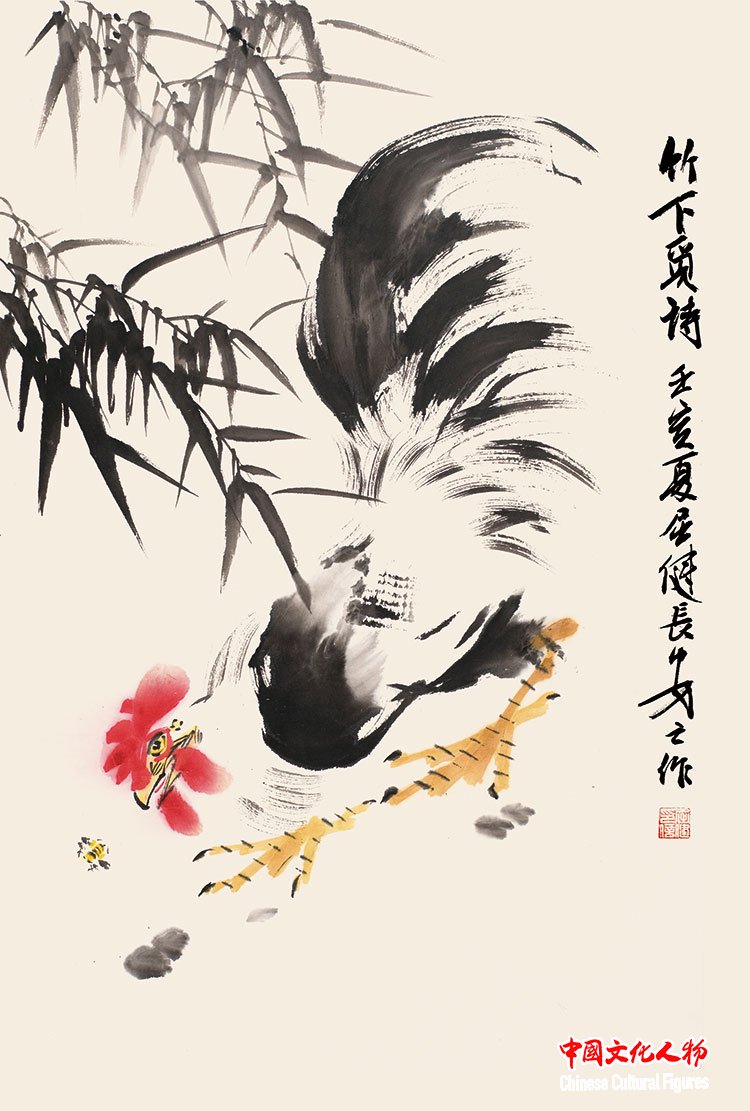 竹下觅诗 壬亥夏屈健長安之作
中國文化人物
Chinese Cultural Figures